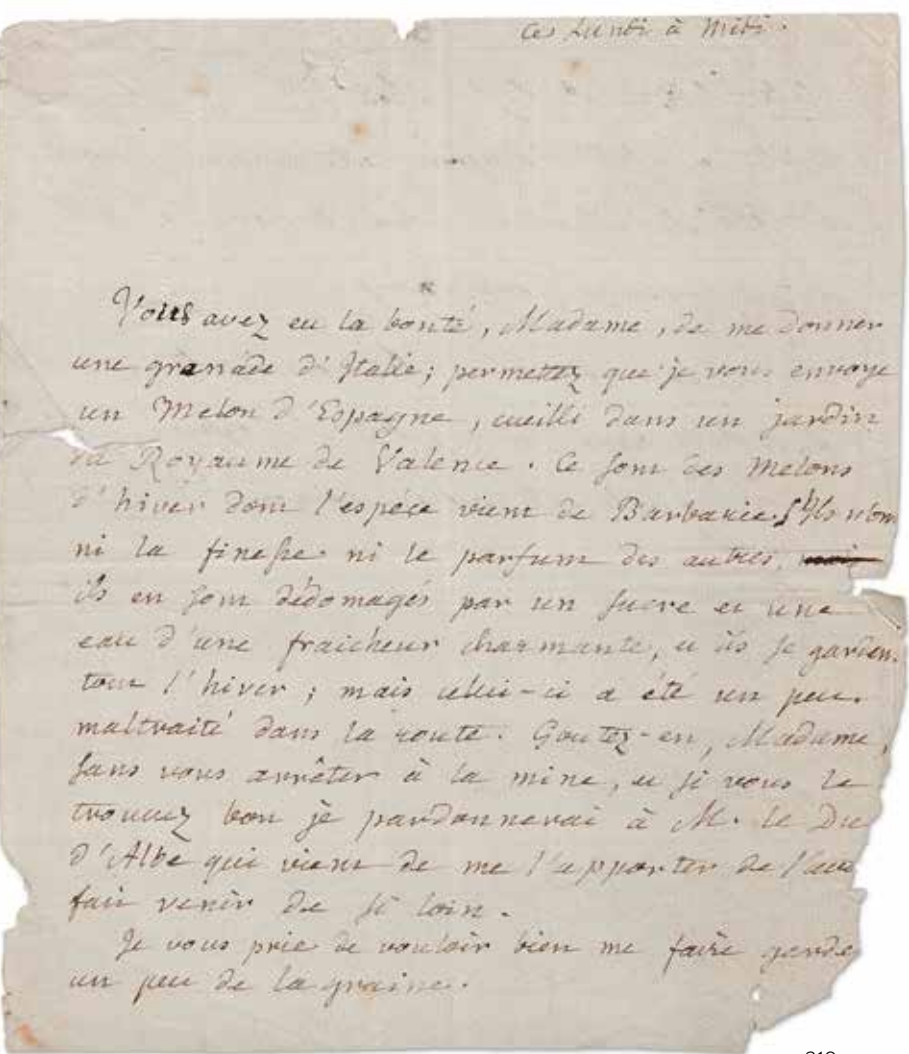 Ces Lundi à Midi.
Vous avez eu la bonté, Madame, de me donner
une granade d'Italie; permettez que je vous envoye
un Melon d'Espagne, cueilli dans un jardin
du Royaume de Valence. Ce sont des Melons
d'hiver dont l'espéce vient de Barbarie. Ils n'ont
ni la finesse ni le parfum des autres, mais
ils en sont dédomagés par un sucre et une
eau d'une fraicheur charmante, et ils se garden
tout l'hiver; mais celui-ci a été un peu
maltraité dans la route. Goutez-en, Madame,
sans vous arrêter à la mine, et si vous le
trouvez bon je pardonnerai à M. le Duc
d'Albe qui vient de me l'apporter de l'avoi
fait venir de si loin.
Je vous prie de vouloir bien me faire garde
un peu de la graine.